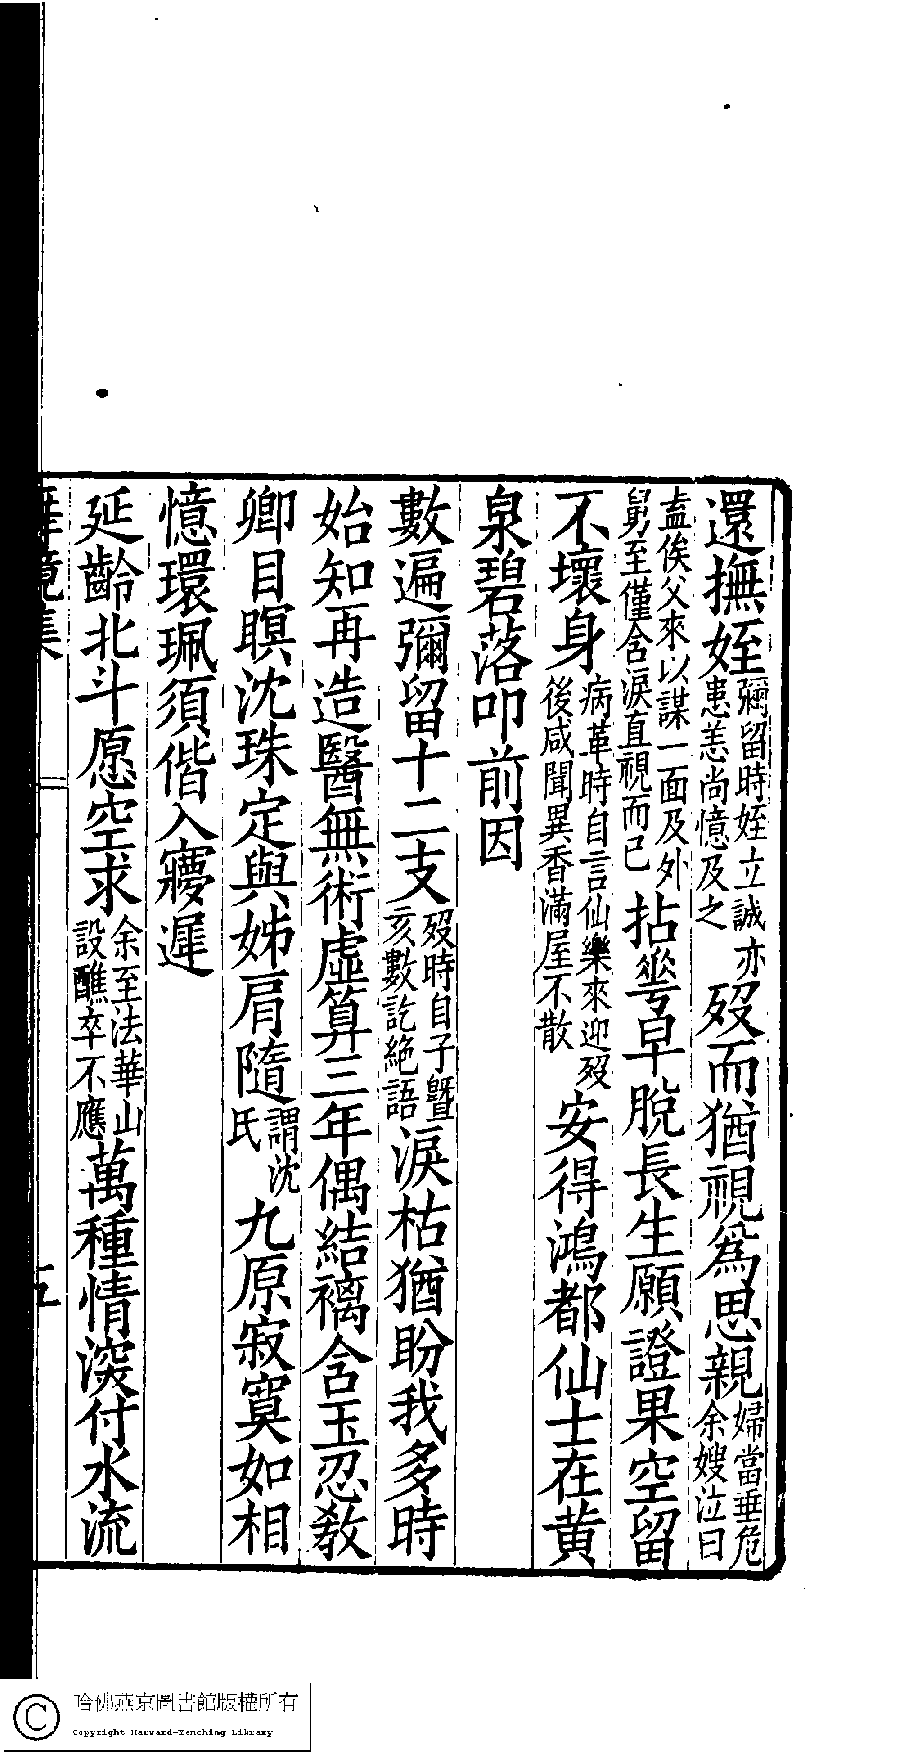 還撫姪彌留時姪立誠亦患恙尚憶及之歿而猶視爲思親婦當垂危余嫂泣曰
盍俟父來以謀一面及外舅至僅含淚直視而已拈蕚早脫長生願證果空留
不壞身病革時自言仙樂來迎歿後咸聞異香滿屋不散安得鴻都仙士在黃
泉碧落叩前因
數遍彌留十二支歿時自子曁亥數訖絶語淚枯猶盼我多時
始知再造醫無術虛算三年偶結褵含玉忍教
卿目瞑沈珠定與姊肩隨謂沈氏九原寂寞如相
憶環珮須偕入㝱遲
延齡北斗愿空求余至法華山設醮卒不應萬種情深付水流
五
哈佛燕京圖書館版權所有
Copyright Harvard-Yenching Library